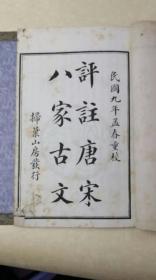 民國九年孟春重校
評註唐宋
八家古文
掃葉山房發行